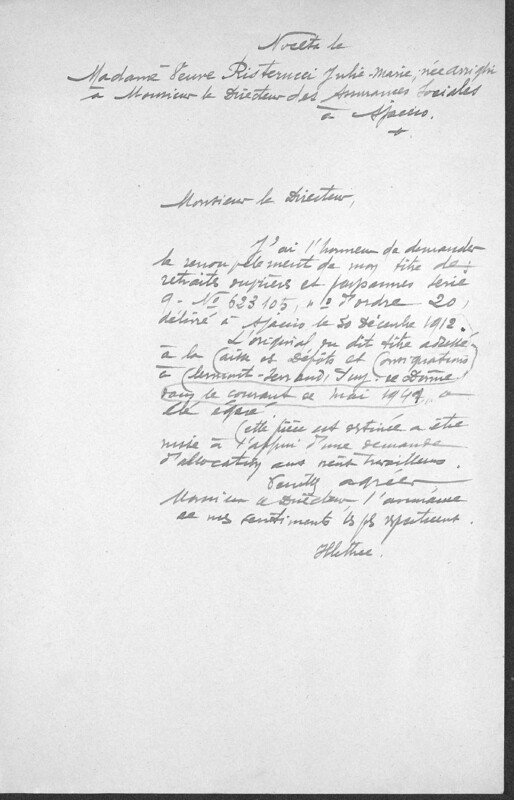 Noceta le
Madame Veuve Risterucci Julie-Marie, née Arrighi
à Monsieur le Directeur des Assurances Sociales
à Ajaccio.
Monsieur le Directeur,
J'ai l'honneur de demander
le renouvelement de mon titre de
retraits ouvriers et paysannes série
9 - No 623105, no d'ordre 20,
délivré à Ajaccio le 30 Décembre 1912.
L'original du dit titre adressé
à la Caisse des Dépôts et Consignations
à Clermont-Ferrand, Puy-de Dôme
dans le courant de mai 1949, a
été égaré
Cette pièce est destinée a être
mise à l'appui d'une demande
d'allocation aux vieux travailleurs.
Veuillez agréer
Monsieur le Directeur l'assurance
de mes sentiments les plus respectueux.
Illettrée.